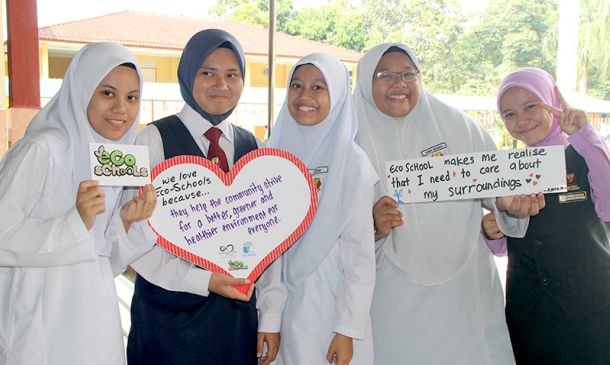 eco
SCHOOLS
We love
Eco-Schools
because...
they help the community strive
for a better, greener and
healthier environment for
everyone.
eco
SCHOOLS
Eco SCHOOL makes me realise
that I need to care about
my surroundings.